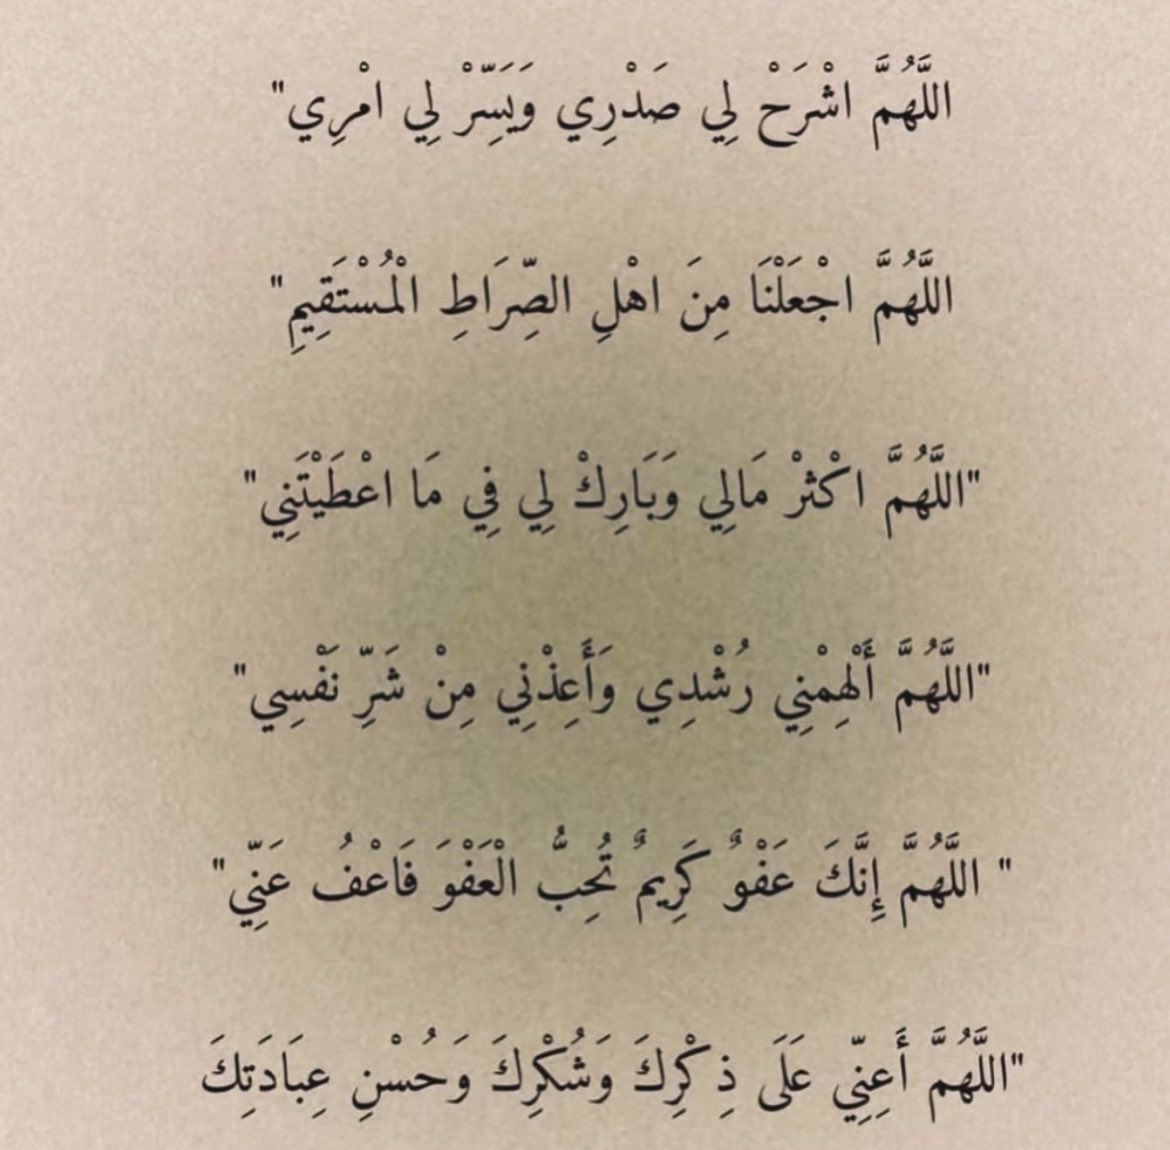 اللَّهُمَّ اشْرَحْ لِي صَدْرِي وَيَسِّرْ لِي امْرِي"
اللَّهُمَّ اجْعَلْنَا مِنَ اهْلِ الصِّرَاطِ الْمُسْتَقِيمِ"
"اللَّهُمَّ اكْثرْ مَالِي وَبَارِكْ لِي فِي مَا اعْطَيْتَنِي"
"اللَّهُمَّ أَلْهِمْنِي رُشْدِي وَأَعِذْنِي مِنْ شَرِّ نَفْسِي"
" اللَّهُمَّ إِنَّكَ عَفْوٌ كَرِيمٌ تُحِبُّ الْعَفْوَ فَاعْفُ عَنِّي"
"اللَّهُمَّ أَعِنِّي عَلَى ذِكْرِكَ وَشُكْرِكَ وَحُسْنِ عِبَادَتِكَ